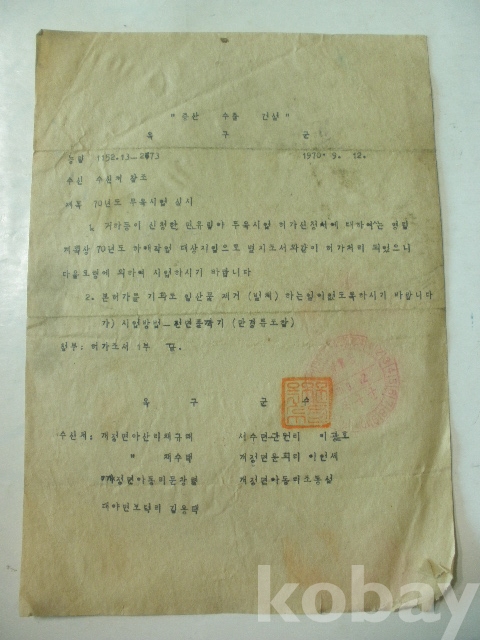 " 증산 수출 건설 "
옥 구 군
농림 1152.13-2673 1970. 9. 12.
수신 수신처 참조
제목 70년도 무육사업 실시
1. 귀하등이 신청한 민유림야 무육사업 허가신청서에 대하여는
70년도 하예작업 대상지임으로 별지조서와같이 허가처리 되었으니
다음요령에 의하여 시업하시기 바랍니다
2. 본허가를 기화로 임산물 제거 (벌채) 하는일이없도록하시기 바랍니다
가) 시업방법 - 전면풀깎기 (만경류포함)
첨부: 허가조서 1부 끝.
옥 구 군 수
수신처: 개정면아산리채규대 서수면관원리
" 채수병 개정면운회리 이현세
개정면아동리문장열 개정면아동리조동섭
대야면보덕리 김동택
kobay